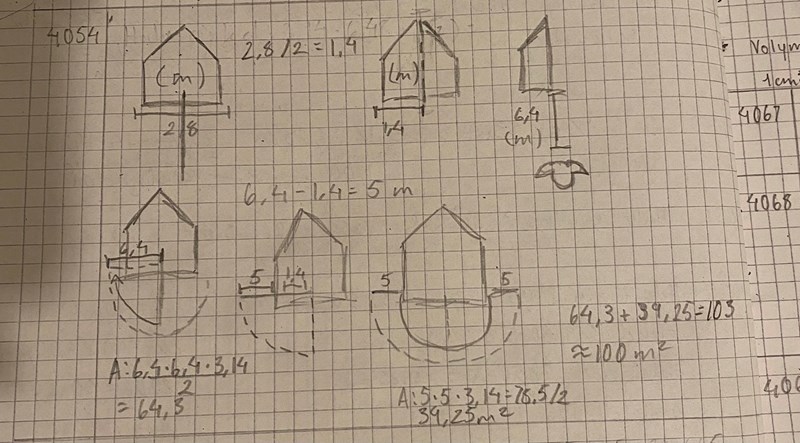 4054
2,8/2 = 1,4
(m)
2,8
(m)
1,4
6,4
(m)
Volym
1cm
4067
4068
6,4 - 1,4 = 5 m
6,4
5
1,4
5
5
64,3 + 39,25 = 103
≈ 100 m²
A: 6,4 · 6,4 · 3,14
2
= 64,3
A: 5 · 5 · 3,14 = 78,5/2
39,25 m²